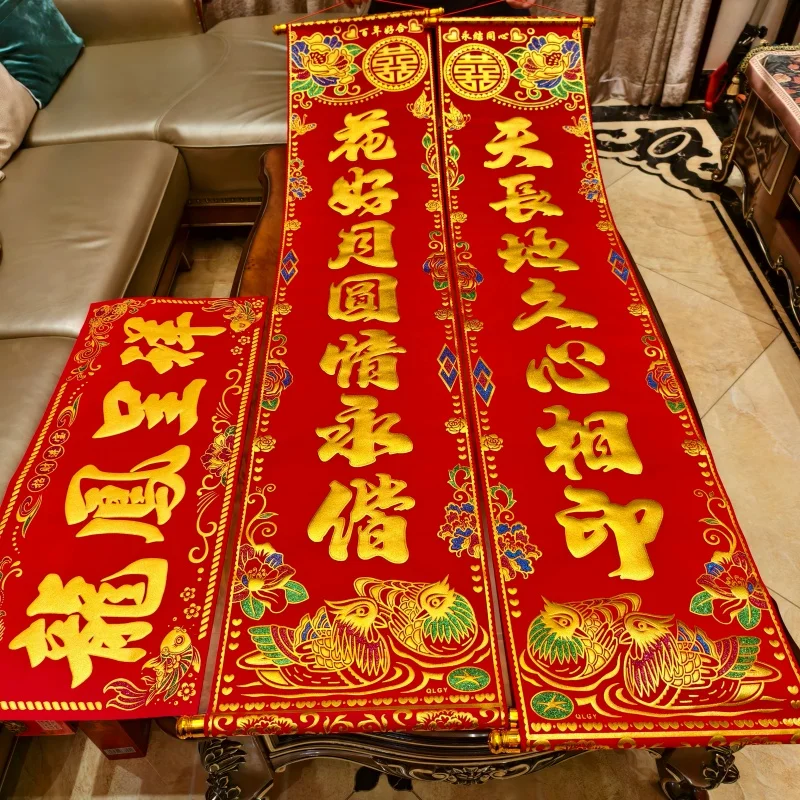 百年好合
囍
花好月圓情永偕
QLGY
永结同心
囍
天長地久心相印
QLGY
龍鳳呈祥